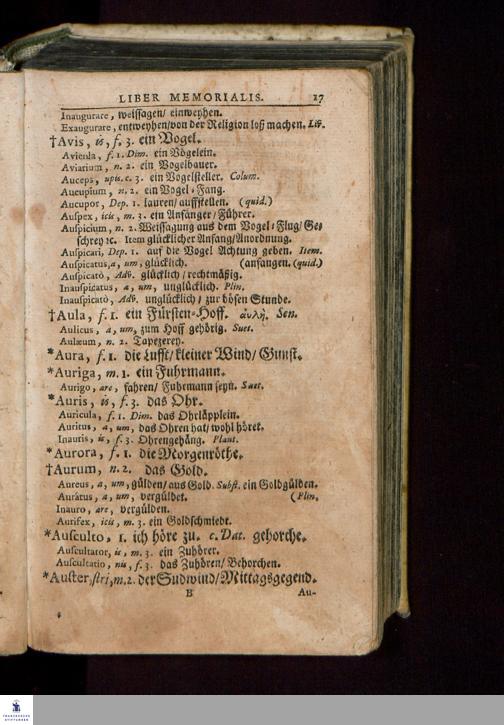 LIBER MEMORIALIS. 17
Inaugurare, weissagen/ einweyhen.
Exaugurare, entweyhen/von der Religion loß machen. Liv.
†Avis, is, f. 3. ein Vogel.
Avicula, f. 1. Dim. ein Vögelein.
Aviarium, n. 2. ein Vogelbauer.
Auceps, upis. c. 3. ein Vogelsteller. Colum.
Aucupium, n. 2. ein Vogel-Fang.
Aucupor, Dep. 1. lauren/ auffstellen. (quid.)
Auspex, icis, m. 3. ein Anfänger/ Führer.
Auspicium, n. 2. Weissagung aus dem Vogel-Flug/ Ge-
schrey ꝛc. Item glücklicher Anfang/Anordnung.
Auspicari, Dep. 1. auf die Vogel Achtung geben. Item.
Auspicatus, a, um, glücklich. (anfangen. (quid.)
Auspicatò, Adv. glücklich/ rechtmäßig.
Inauspicatus, a, um, unglücklich. Plin.
Inauspicatò, Adv. unglücklich/ zur bösen Stunde.
†Aula, f. 1. ein Fürsten-Hoff. αυλή. Sen.
Aulicus, a, um, zum Hoff gehörig. Suet.
Aulæum, n. 2. Tapezerey.
*Aura, f. 1. die Lufft/ kleiner Wind/ Gunst.
*Auriga, m. 1. ein Fuhrmann.
Aurigo, are, fahren/ Fuhrmann seyn. Suet.
*Auris, is, f. 3. das Ohr.
Auricula, f. 1. Dim. das Ohrläpplein.
Auritus, a, um, das Ohren hat/ wohl höret.
Inauris, is, f. 3. Ohrengehäng. Plaut.
*Aurora, f. 1. die Morgenröthe.
†Aurum, n. 2. das Gold.
Aureus, a, um, gülden/ aus Gold. Subst. ein Goldgülden.
Aurâtus, a, um, vergüldet. (Plin.
Inauro, are, vergülden.
Aurifex, icis, m. 3. ein Goldschmiedt.
*Ausculto, 1. ich höre zu. c. Dat. gehorche.
Auscultator, is, m. 3. ein Zuhörer.
Auscultatio, nis, f. 3. das Zuhören/ Behorchen.
*Auster, stri, m. 2. der Sudwind/ Mittagsgegend.
B Au-
FRANCKESCHE
STIFTUNGEN